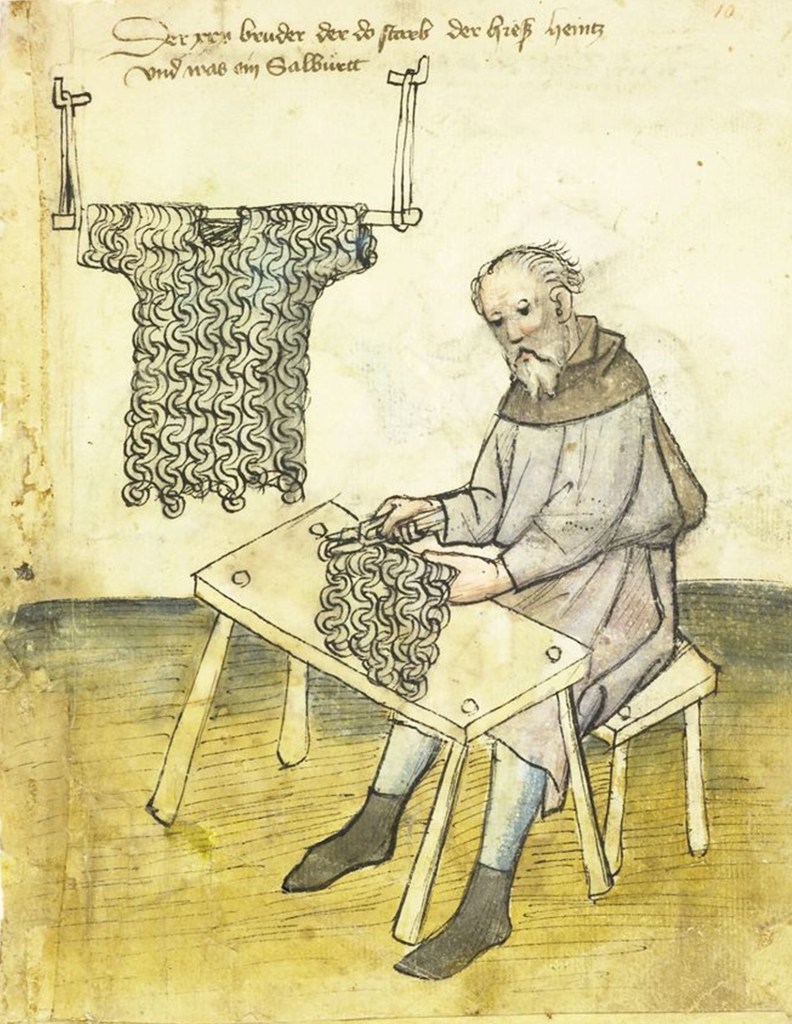 Der xxv bruder der do starb der hieß heintz
vnd was ein Salburtt
10